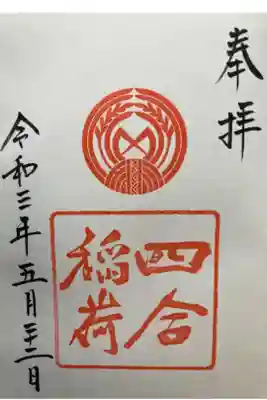 奉拝
四合
稲荷
令和三年五月二十二日